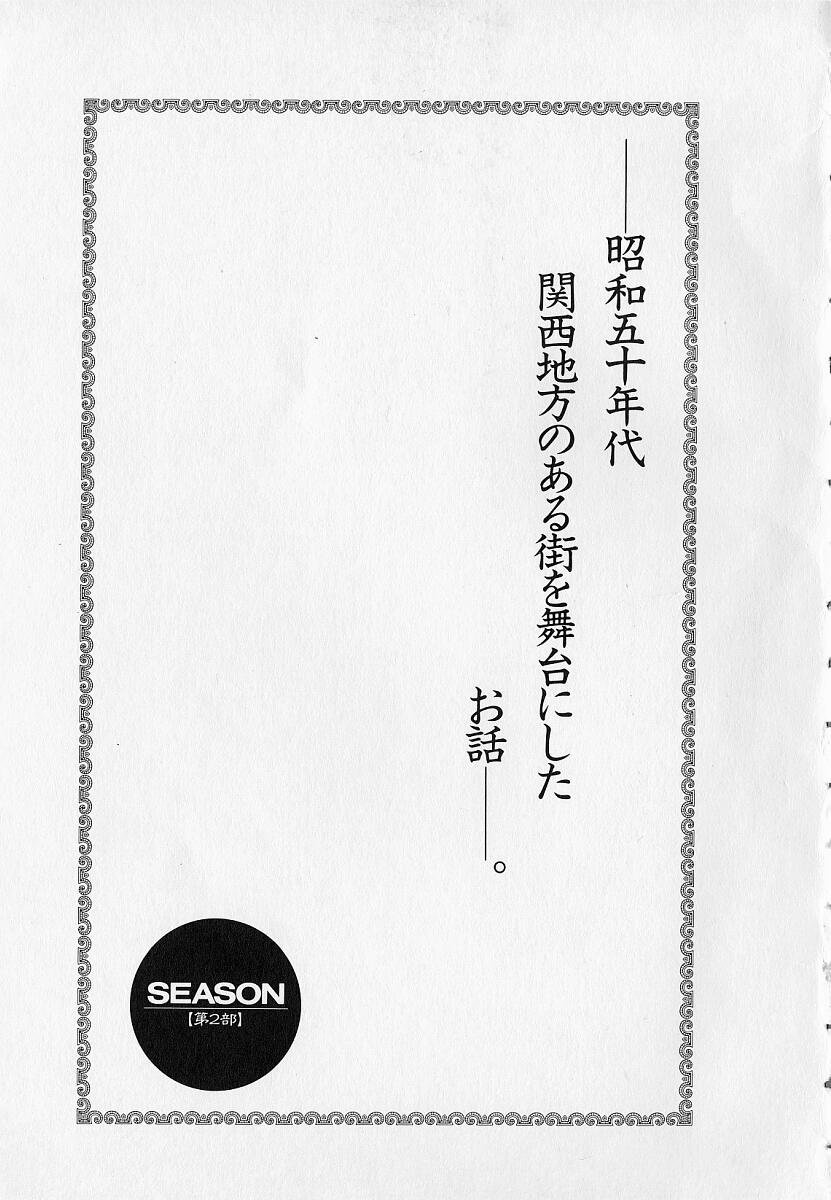 ――昭和五十年代
関西地方のある街を舞台にした
お話――。
SEASON
【第2部】